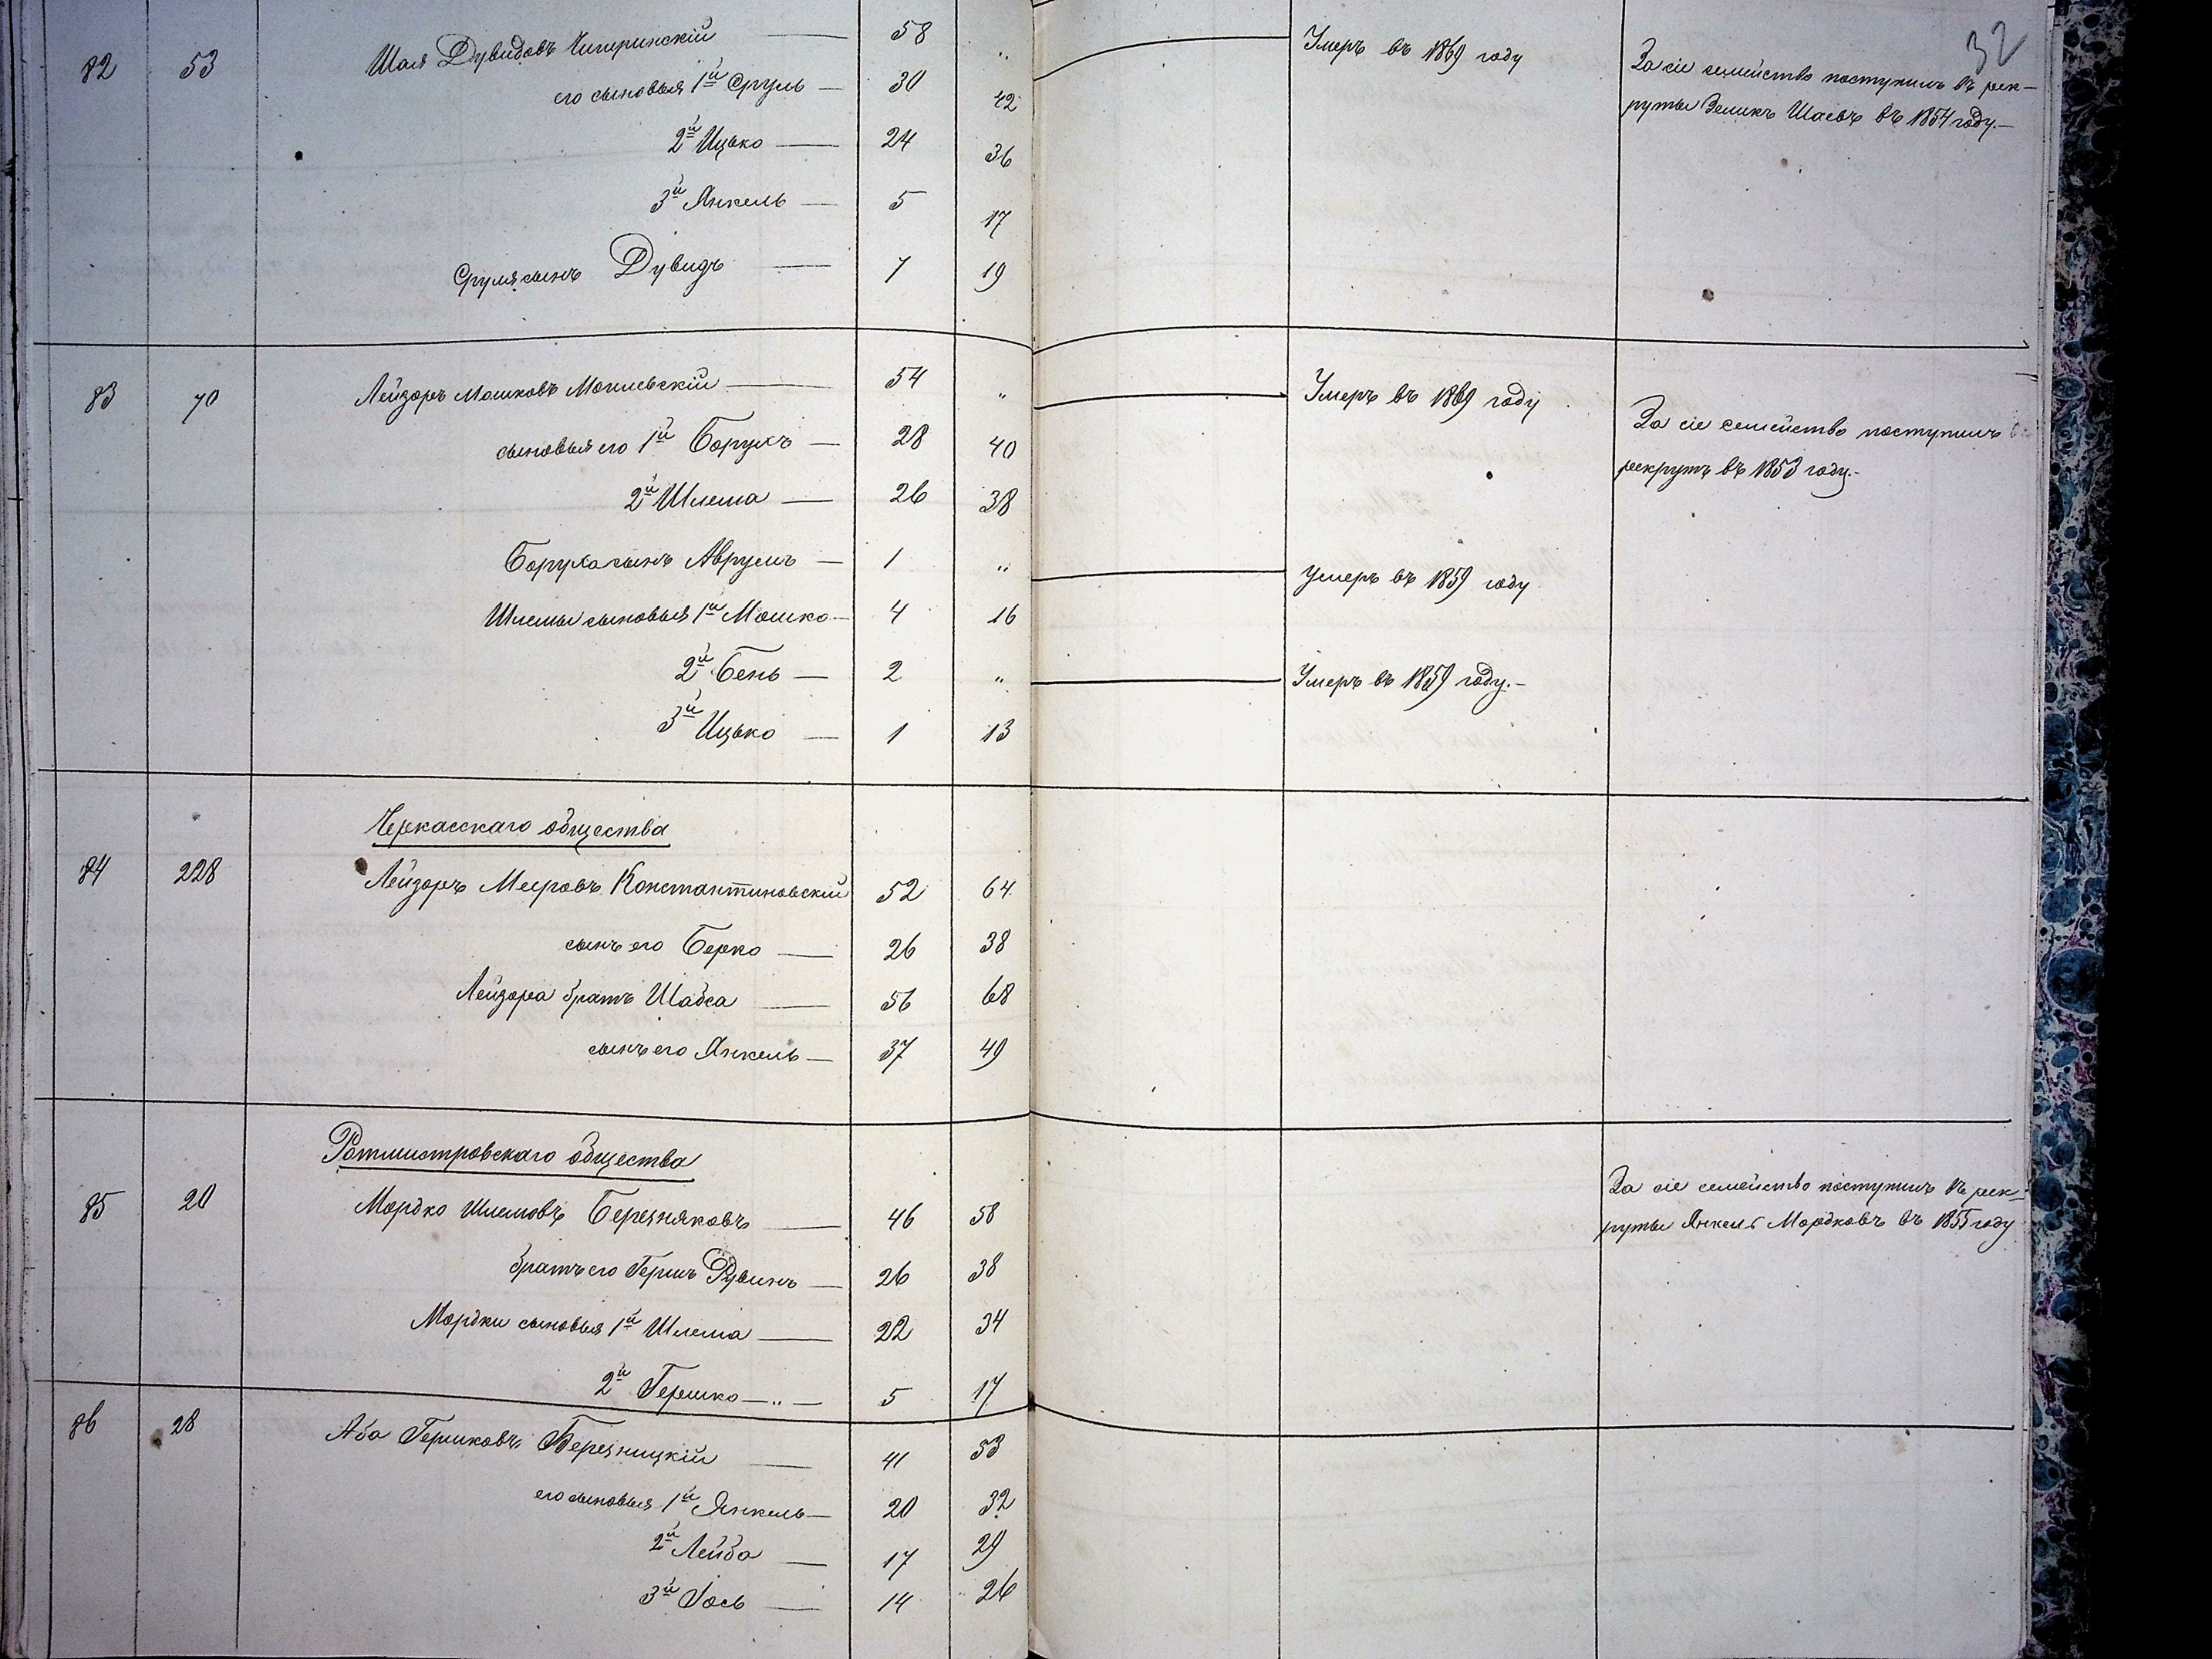 32
82 53 Шая Дувидовъ Чигиринскій — 58 „ Умеръ въ 1869 году
За сіе семейство поступилъ въ рек-
руты Зеликъ Шаевъ въ 1854 году.—
его сыновья 1й Сруль — 30 42
2й Ицько — 24 36
3й Янкель — 5 17
Сруля сынъ Дувидъ — 7 19
83 70 Лейзоръ Мошковъ Могилевскій — 54 „ Умеръ въ 1869 году
За сіе семейство поступилъ
рекрутъ въ 1853 году.-
сыновья его 1й Борухъ — 28 40
2й Шлема — 26 38
Боруха сынъ Аврумъ — 1 „ Умеръ въ 1859 году
Шлемы сыновья 1й Мошко — 4 16
2й Бень — 2 „ Умеръ въ 1859 году.—
3й Ицько — 1 13
Черкасскаго общества
84 228 Лейзоръ Мееровъ Константиновскій 52 64
сынъ его Берко — 26 38
Лейзора братъ Шабса — 56 68
сынъ его Янкель — 37 49
Ротмистровскаго общества
85 20 Мордко Шлемовъ Березняковъ — 46 58
За сіе семейство поступилъ въ рек-
руты Янкель Мордковъ въ 1855 году
братъ его Гершъ Рувинъ — 26 38
Мордки сыновья 1й Шлема — 22 34
2й Гершко —„— 5 17
86 28 Аба Гершковъ Березницкій — 41 53
его сыновья 1й Янкель — 20 32
2й Лейба — 17 29
3й Іось — 14 26